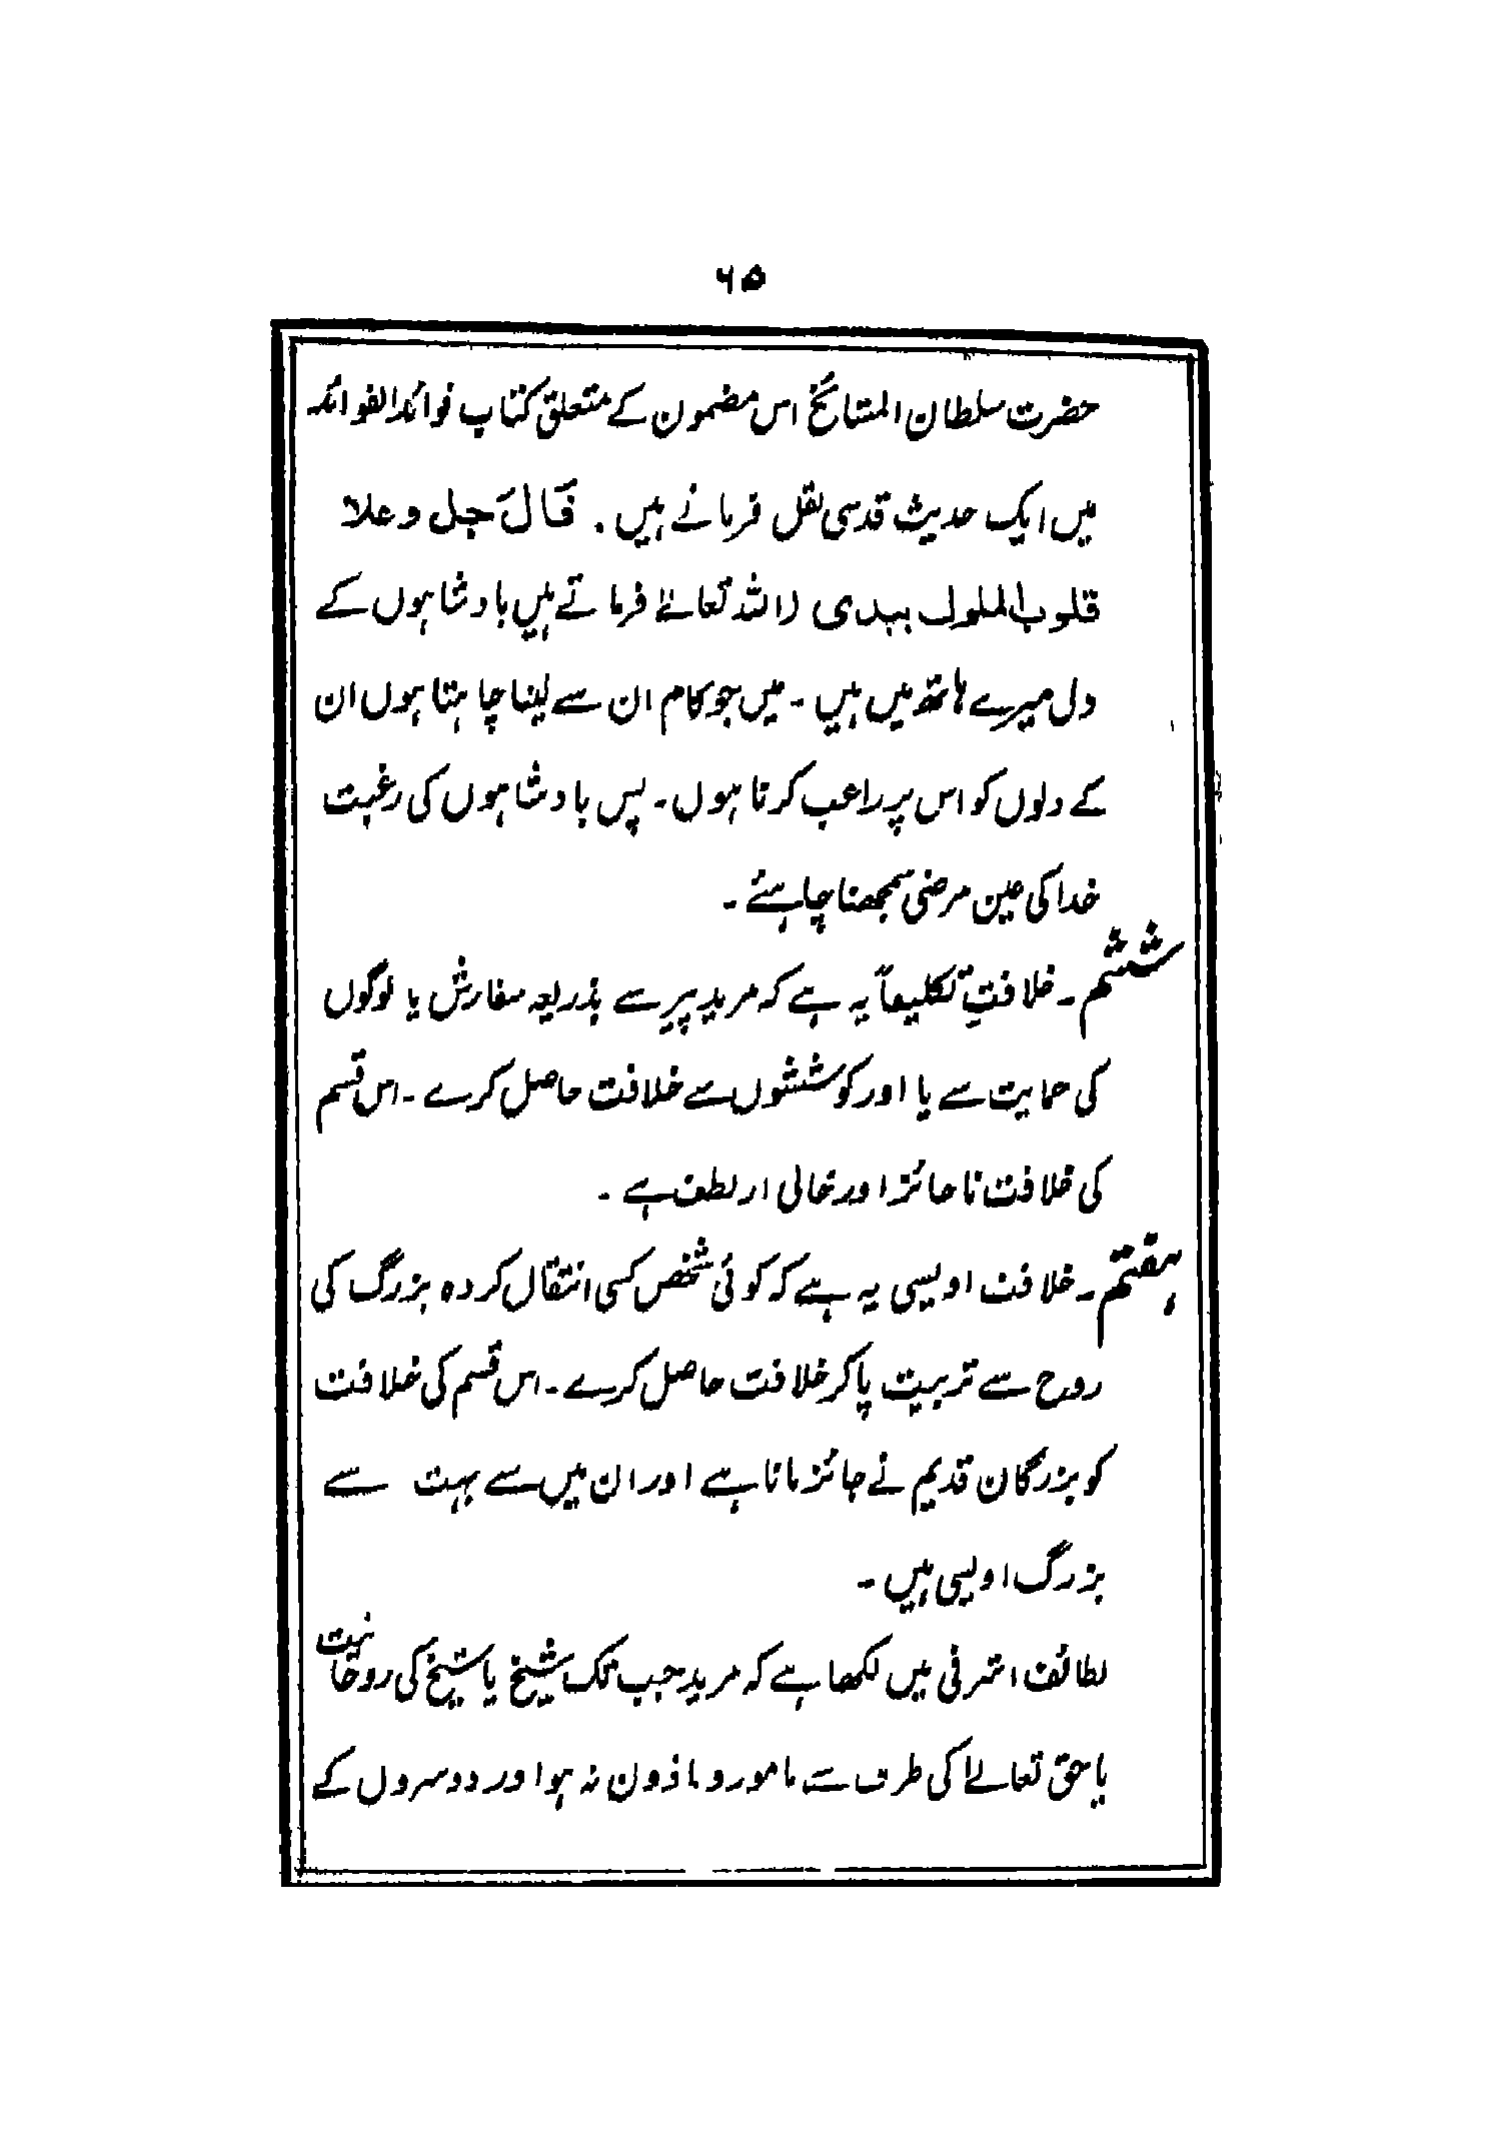 ۶۵
حضرت سلطان المشائخ اس مضمون کے متعلق کتاب فوائد الفوائد
میں ایک حدیث قدسی نقل فرماتے ہیں . قَالَ جل و علا
قلوب الملوک بیدی (اللہ تعالےٰ فرماتے ہیں بادشاہوں کے
دل میرے ہاتھ میں ہیں ۔ میں جو کام ان سے لینا چاہتا ہوں ان
کے دلوں کو اس پر راغب کرتا ہوں ۔ پس بادشاہوں کی رغبت
خدا کی عین مرضی سمجھنا چاہئے ۔
ششم ۔ خلافتِ تکلیفاً یہ ہے کہ مرید پیر سے بذریعہ سفارش یا لوگوں
کی حمایت سے یا اور کوششوں سے خلافت حاصل کرے ۔ اس قسم
کی خلافت ناجائز اور خالی از لطف ہے ۔
ہفتم ۔ خلافت اویسی یہ ہے کہ کوئی شخص کسی انتقال کردہ بزرگ کی
روح سے تربیت پاکر خلافت حاصل کرے ۔ اس قسم کی خلافت
کو بزرگان قدیم نے جائز مانا ہے اور ان میں سے بہت سے
بزرگ اویسی ہیں ۔
لطائف اشرفی میں لکھا ہے کہ مرید جب تک شیخ یا شیخ کی روحانیت
یا حق تعالےٰ کی طرف سے مامور و ماذون نہ ہو اور دوسروں کے